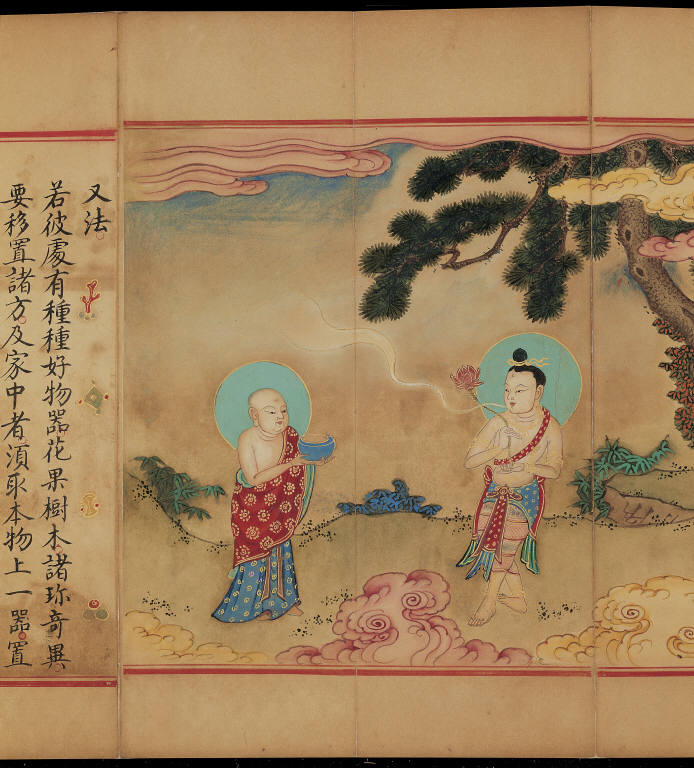 又法
若彼處有種種好物器花果樹木諸珎竒異
要移置諸方及家中者須取本物上一器置